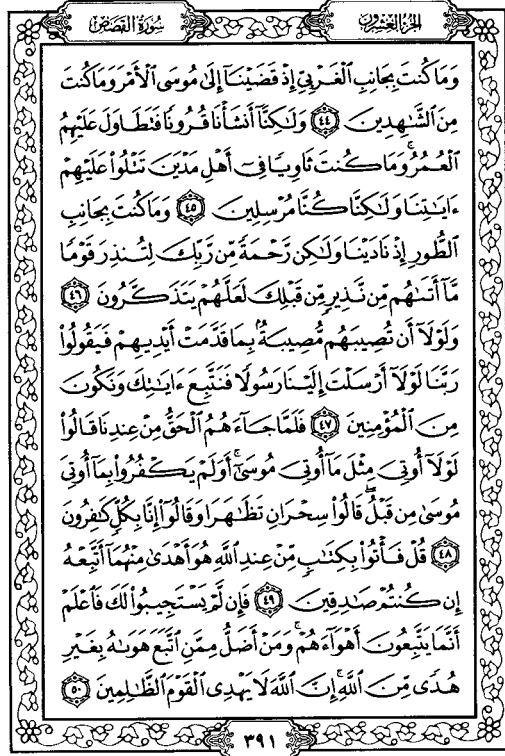 سُورَةُ القَصَصِ الجُزْءُ العِشْرُونَ
وَمَا كُنتَ بِجَانِبِ ٱلْغَرْبِيِّ إِذْ قَضَيْنَآ إِلَىٰ مُوسَى ٱلْأَمْرَ وَمَا كُنتَ
مِنَ ٱلشَّٰهِدِينَ ٤٤ وَلَٰكِنَّآ أَنشَأْنَا قُرُونًا فَتَطَاوَلَ عَلَيْهِمُ
ٱلْعُمُرُ ۚ وَمَا كُنتَ ثَاوِيًا فِىٓ أَهْلِ مَدْيَنَ تَتْلُوا۟ عَلَيْهِمْ
ءَايَٰتِنَا وَلَٰكِنَّا كُنَّا مُرْسِلِينَ ٤٥ وَمَا كُنتَ بِجَانِبِ
ٱلطُّورِ إِذْ نَادَيْنَا وَلَٰكِن رَّحْمَةً مِّن رَّبِّكَ لِتُنذِرَ قَوْمًا
مَّآ أَتَىٰهُم مِّن نَّذِيرٍ مِّن قَبْلِكَ لَعَلَّهُمْ يَتَذَكَّرُونَ ٤٦
وَلَوْلَآ أَن تُصِيبَهُم مُّصِيبَةٌۢ بِمَا قَدَّمَتْ أَيْدِيهِمْ فَيَقُولُوا۟
رَبَّنَا لَوْلَآ أَرْسَلْتَ إِلَيْنَا رَسُولًا فَنَتَّبِعَ ءَايَٰتِكَ وَنَكُونَ
مِنَ ٱلْمُؤْمِنِينَ ٤٧ فَلَمَّا جَآءَهُمُ ٱلْحَقُّ مِنْ عِندِنَا قَالُوا۟
لَوْلَآ أُوتِىَ مِثْلَ مَآ أُوتِىَ مُوسَىٰٓ ۚ أَوَلَمْ يَكْفُرُوا۟ بِمَآ أُوتِىَ
مُوسَىٰ مِن قَبْلُ ۖ قَالُوا۟ سِحْرَانِ تَظَٰهَرَا وَقَالُوٓا۟ إِنَّا بِكُلٍّ كَٰفِرُونَ
٤٨ قُلْ فَأْتُوا۟ بِكِتَٰبٍ مِّنْ عِندِ ٱللَّهِ هُوَ أَهْدَىٰ مِنْهُمَآ أَتَّبِعْهُ
إِن كُنتُمْ صَٰدِقِينَ ٤٩ فَإِن لَّمْ يَسْتَجِيبُوا۟ لَكَ فَٱعْلَمْ
أَنَّمَا يَتَّبِعُونَ أَهْوَآءَهُمْ ۚ وَمَنْ أَضَلُّ مِمَّنِ ٱتَّبَعَ هَوَىٰهُ بِغَيْرِ
هُدًى مِّنَ ٱللَّهِ ۚ إِنَّ ٱللَّهَ لَا يَهْدِى ٱلْقَوْمَ ٱلظَّٰلِمِينَ ٥٠
٣٩١